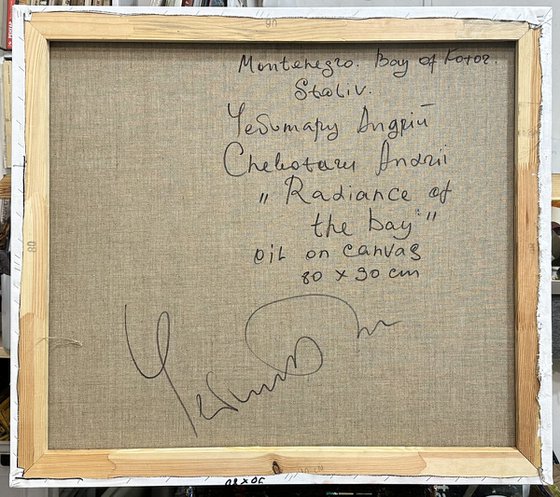 90
Montenegro. Bay of Kotor.
Staliv.
Чеботару Андрій
Chebotaru Andrii
„Radiance of
the bay"
oil on canvas
80 x 90 cm
80